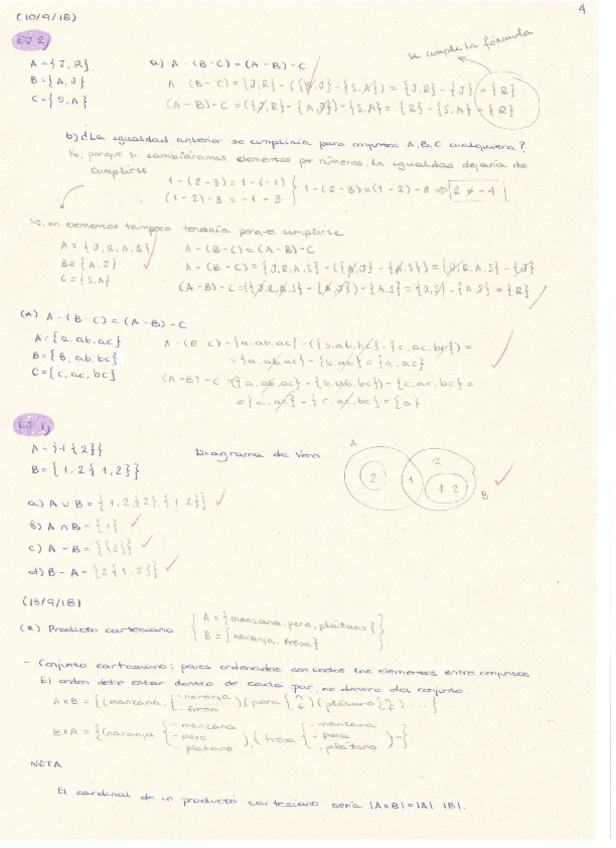 4
(10/9/18)
EJ 2)
se cumple la fórmula
A = {J, R}
B = {A, J}
C = {S, A}
a) A - (B - C) = (A - B) - C
A - (B - C) = {J, R} - ({A, J} - {S, A}) = {J, R} - {J} = {R}
(A - B) - C = ({J, R} - {A, J}) - {S, A} = {R} - {S, A} = {R}
b) ¿La igualdad anterior se cumpliría para conjuntos A, B, C cualquiera?
No, porque si cambiáramos elementos por números, la igualdad dejaría de
cumplirse
1 - (2 - 3) = 1 - (-1)
(1 - 2) - 3 = -1 - 3
1 - (2 - 3) = (1 - 2) - 3 ⇒ 2 ≠ -4
No, en elementos tampoco tendría porque cumplirse
A = {J, R, A, S}
B = {A, J}
C = {S, A}
A - (B - C) = (A - B) - C
A - (B - C) = {J, R, A, S} - ({A, J} - {A, S}) = {J, R, A, S} - {J}
(A - B) - C = ({J, R, A, S} - {A, J}) - {A, S} = {R, S} - {A, S} = {R}
(*) A - (B - C) = (A - B) - C
A = {a, ab, ac}
B = {b, ab, bc}
C = {c, ac, bc}
A - (B - C) = {a, ab, ac} - ({b, ab, bc} - {c, ac, bc}) =
= {a, ab, ac} - {b, ab} = {a, ac}
(A - B) - C = ({a, ab, ac} - {b, ab, bc}) - {c, ac, bc} =
= {a, ac} - {c, ac, bc} = {a}
EJ 1)
A = {1 {2}}
B = {1, 2 {1, 2}}
Diagrama de Venn
A
2
1
2
1, 2
B
a) A ∪ B = {1, 2, {2}, {1, 2}}
b) A ∩ B = {1}
c) A - B = {{2}}
d) B - A = {2 {1, 2}}
(13/9/18)
(*) Producto cartesiano
A = {manzana, pera, plátano}
B = {naranja, fresa}
- Conjunto cartesiano: pares ordenados con todos los elementos entre conjuntos
El orden debe estar dentro de cada par, no dentro del conjunto.
A×B = {(manzana, {- naranja - fresa) (pera {n f) (plátano {n f) ...}
B×A = {(naranja {- manzana - pera - plátano), (fresa {- manzana - pera - plátano) -}
NOTA
El cardinal de un producto cartesiano sería |A×B| = |A| · |B|.